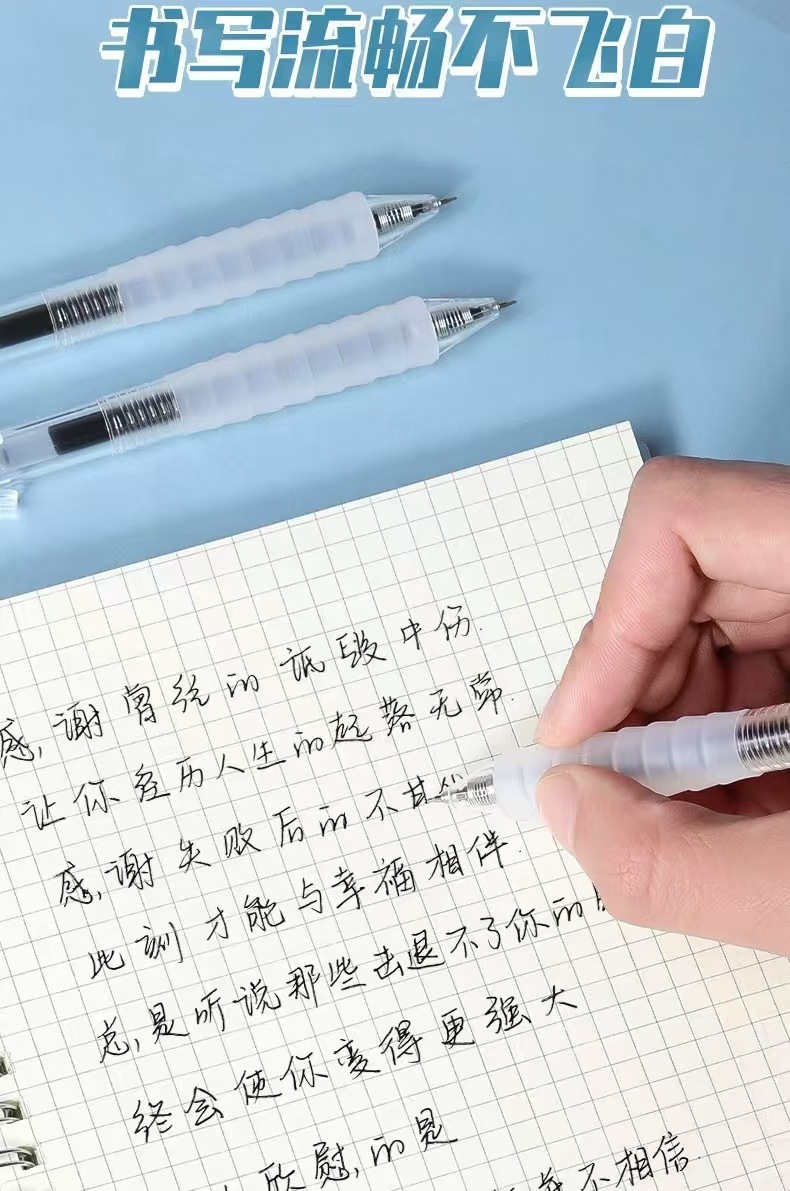 书写流畅不飞白
感谢曾经的诋毁中伤.
让你经历人生的起落无常.
感谢失败后的不甘
此训才能与幸福相伴.
总是听说那些击退不了你的
终会使你变得更强大
欣慰的是
不相信.